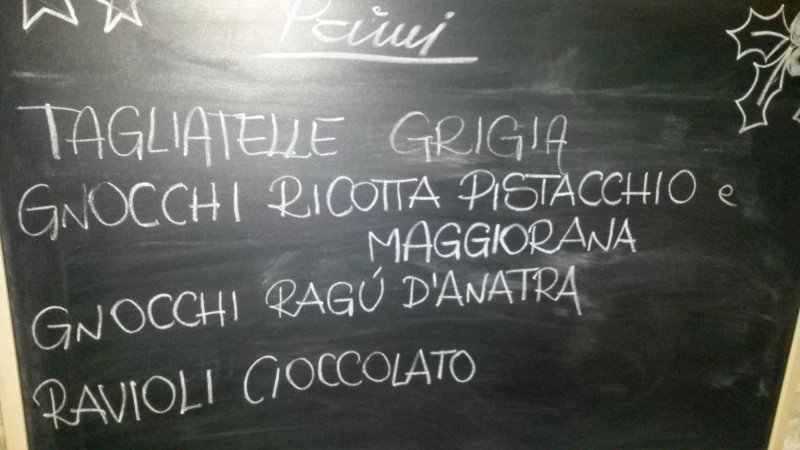 Primi
TAGLIATELLE GRIGIA
GNOCCHI RICOTTA PISTACCHIO e
MAGGIORANA
GNOCCHI RAGÚ D'ANATRA
RAVIOLI CIOCCOLATO